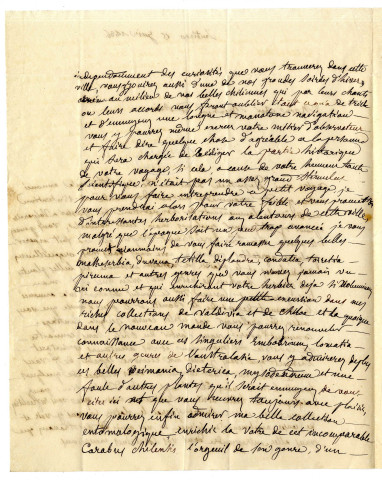 independamment des curiosités que vous trouverez dans cette
ville, vous jouirez aussi d'une de nos grandes soirées d'hiver
au milieu de nos belles chiliennes qui par leurs chants
ou leurs accords vous feront oublier de triste
et d'ennuyeux une longue et monotone navigation
vous y pourrez même exercer votre métier d'observateur
et faire dire quelque chose d'agréable a la personne
qui sera chargée de rédiger la partie historique
de votre voyage. si cela a cause de votre humeur toute
scientifique, n'était pas un assez grand stimulus
pour vous faire entreprendre ce petit voyage, je
vous prendrai alors par votre faible et vous promettrai
d'interessantes herborisations aux alentours de cette ville
malgré que l'époque soit un peu trop avancé je vous
promet néanmoins de vous faire ramasser quelques belles
duvaua, tetilla, diplandra, condalia,
et autres genres que vous n'aviez jamais vu
et qui enrichiront votre herbier deja si volumineux
nous pourrons aussi faire une petite excursion dans mes
riches collections de Valdivia et de Chiloe, et la quoique
dans le nouveau monde vous pourrez renouveler
connaissance avec ces singuliers Embothrium, lomatia
et autres genres de l'australasie, vous y admirerez de plus
ces belles myzodendrum et une
foule d'autres plantes qu'il serait ennuyeux de vous
citer ici et que vous trouverez toujours avec plaisir
vous pourrez enfin admirer ma belle collection
entomologique enrichir la votre de cet incomparable
Carabus chilensis l'orgueil de son genre, d'un